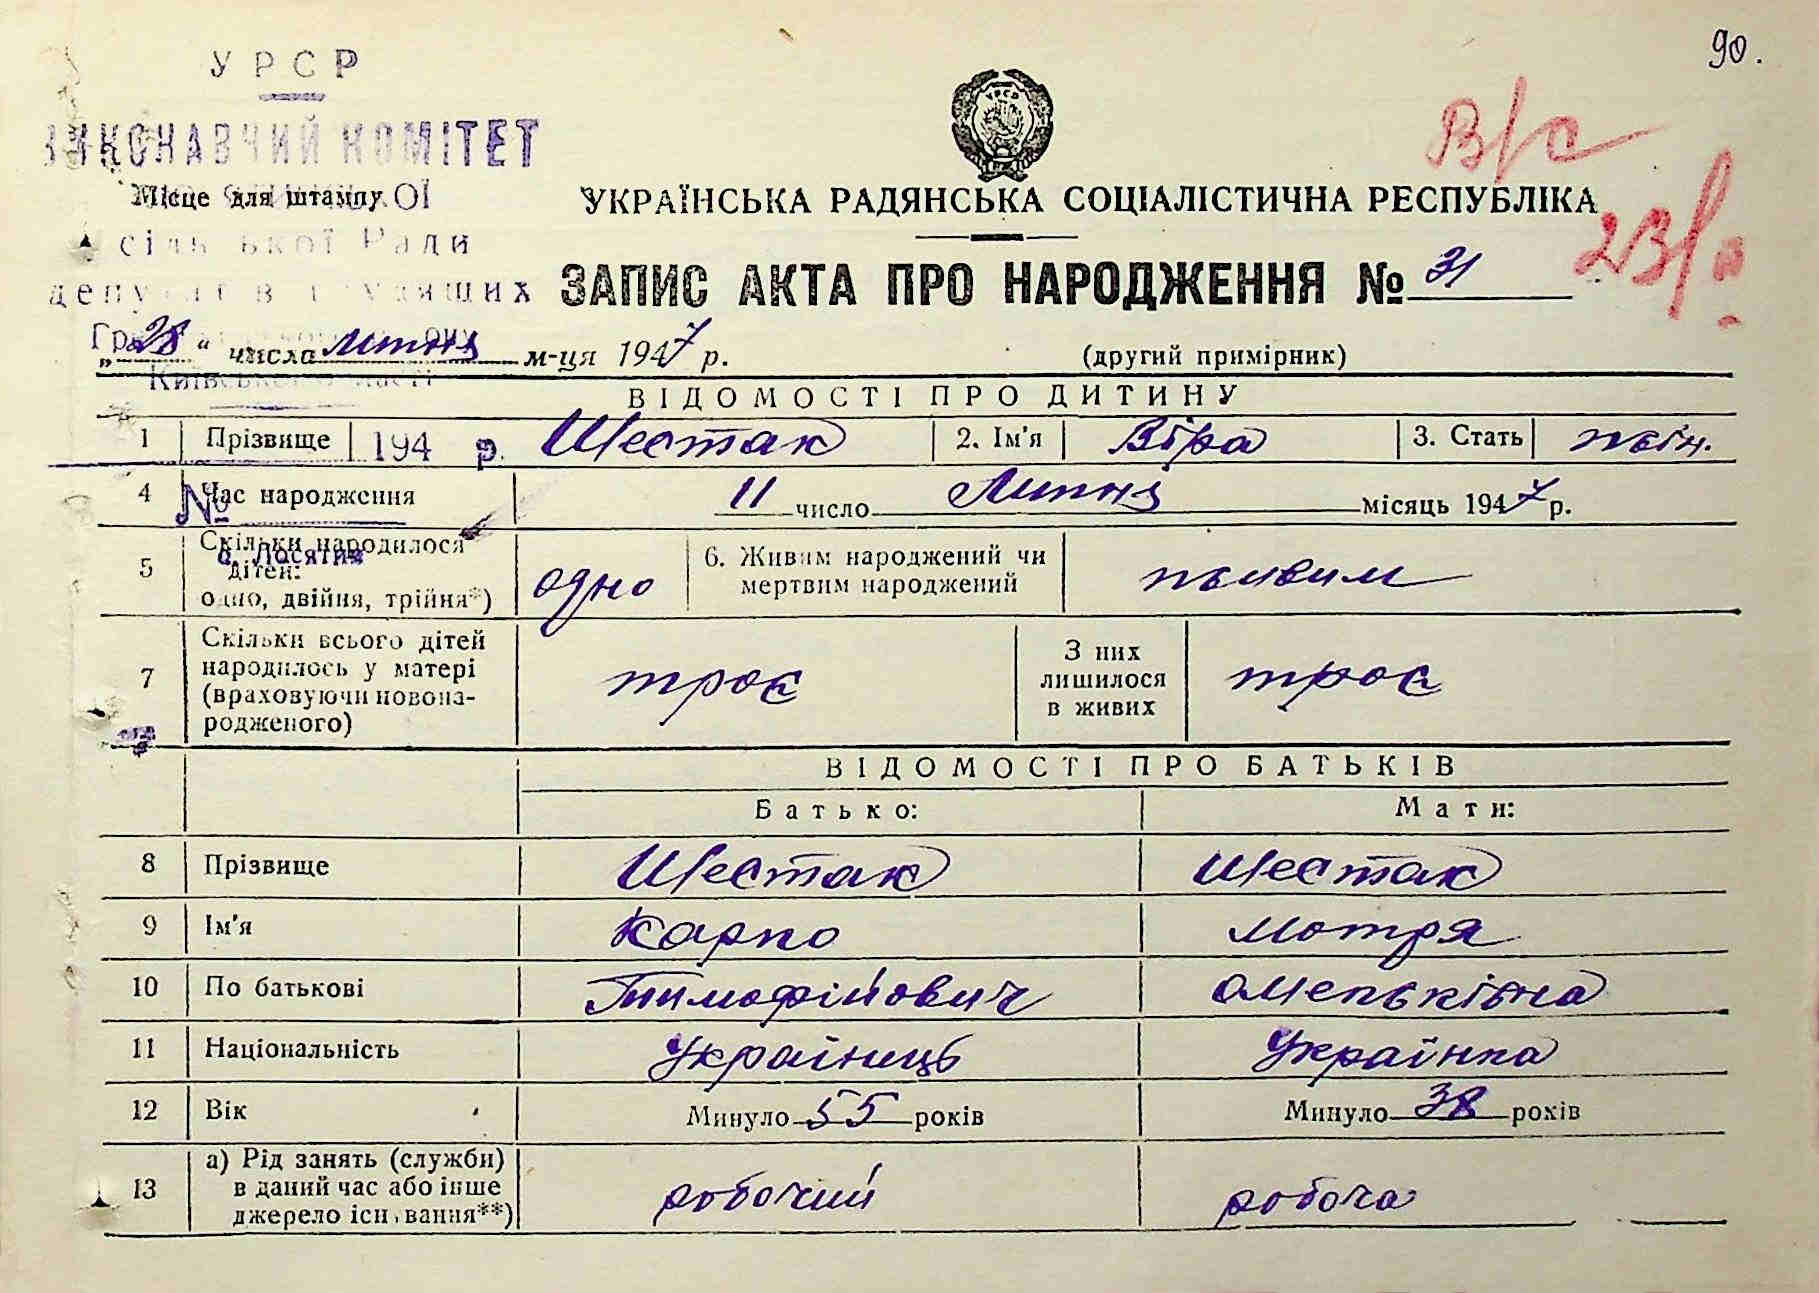 90.
УРСР
ВИКОНАВЧИЙ КОМІТЕТ
Місце для штампу ОЇ
сільської Ради
депутатів трудящих
В/с
23/
УРСР
УКРАЇНСЬКА РАДЯНСЬКА СОЦІАЛІСТИЧНА РЕСПУБЛІКА
ЗАПИС АКТА ПРО НАРОДЖЕННЯ № 31
„28“ числа липня м-ця 1947 р. (другий примірник)
Київської області
ВІДОМОСТІ ПРО ДИТИНУ
1 Прізвище 194 р. Шестак 2. Ім'я Віра 3. Стать жін.
4 Час народження 11 число Липня місяць 1947 р.
№
5 Скільки народилося дітей: одно, двійня, трійня*) одно 6. Живим народжений чи мертвим народжений живим
с. Лосятин
7 Скільки всього дітей народилось у матері (враховуючи новонародженого) троє З них лишилося в живих троє
ВІДОМОСТІ ПРО БАТЬКІВ
Батько: Мати:
8 Прізвище Шестак Шестак
9 Ім'я Карпо Мотря
10 По батькові Тимофійович Омельківна
11 Національність Українець Українка
12 Вік Минуло 55 років Минуло 38 років
13 а) Рід занять (служби) в даний час або інше джерело існування**) робочий робоча